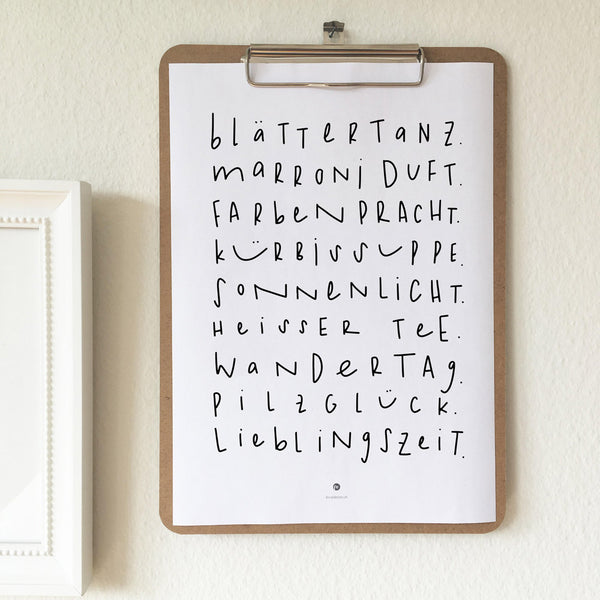 blätterTanz.
marroni Duft.
Farbenpracht.
kürbissuppe.
sonnenlicht.
heisser Tee.
wandertag.
pilzglück.
lieblingszeit.